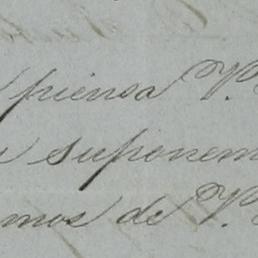 piensa V.
suponem
mos de V.